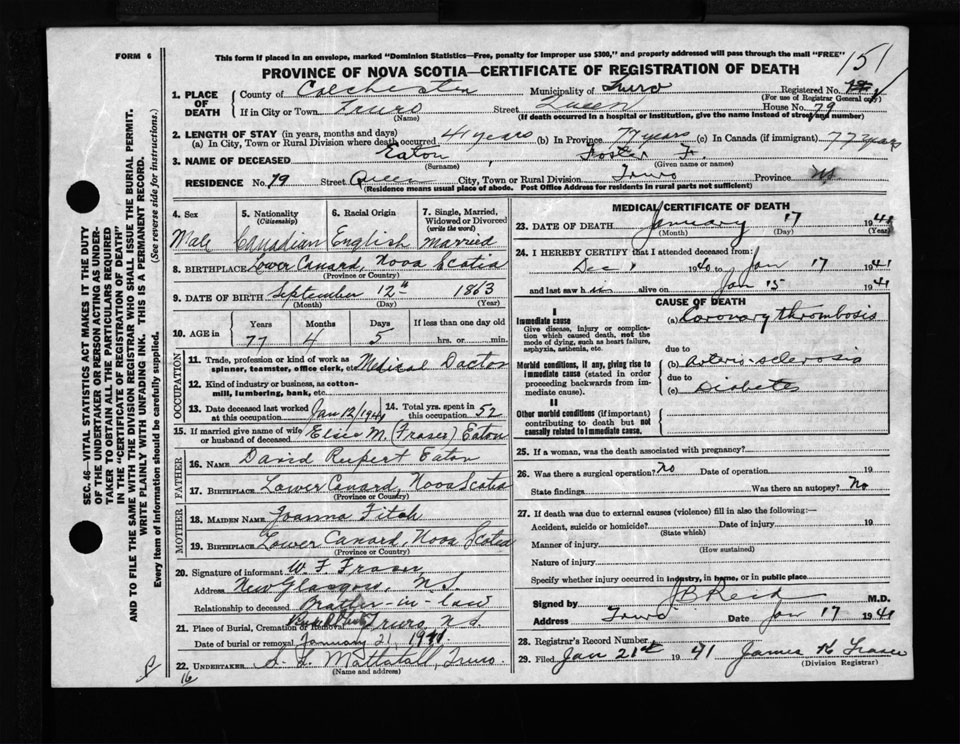 FORM 6
This form if placed in an envelope, marked "Dominion Statistics—Free, penalty for improper use $300," and properly addressed will pass through the mail "FREE"
151
PROVINCE OF NOVA SCOTIA—CERTIFICATE OF REGISTRATION OF DEATH
1. PLACE OF DEATH County of Colchester Municipality of Truro Registered No.
(For use of Registrar General only)
If in City or Town Truro Street Queen House No. 79
(Name) (If death occurred in a hospital or institution, give the name instead of street and number)
2. LENGTH OF STAY (in years, months and days)
(a) In City, Town or Rural Division where death occurred 41 years (b) In Province 77 years (c) In Canada (if immigrant) 77 years
3. NAME OF DECEASED Eaton, Foster F.
(Surname) (Given name or names)
RESIDENCE No. 79 Street Queen City, Town or Rural Division Truro Province NS
(Residence means usual place of abode. Post Office Address for residents in rural parts not sufficient)
4. Sex Male
5. Nationality (Citizenship) Canadian
6. Racial Origin English
7. Single, Married, Widowed or Divorced (write the word) married
8. BIRTHPLACE Lower Canard, Nova Scotia
(Province or Country)
9. DATE OF BIRTH September 12th 1863
(Month) (Day) (Year)
10. AGE in Years Months Days If less than one day old
77 4 5 hrs. or min.
OCCUPATION
11. Trade, profession or kind of work as spinner, teamster, office clerk, etc. Medical Doctor
12. Kind of industry or business, as cotton-mill, lumbering, bank, etc.
13. Date deceased last worked at this occupation Jan 12/1941 14. Total yrs. spent in this occupation 52
15. If married give name of wife or husband of deceased Elsie M. (Fraser) Eaton
FATHER
16. NAME David Rupert Eaton
17. BIRTHPLACE Lower Canard, Nova Scotia
(Province or Country)
MOTHER
18. MAIDEN NAME Joanna Fitch
19. BIRTHPLACE Lower Canard, Nova Scotia
(Province or Country)
20. Signature of informant W. F. Fraser
Address New Glasgow, N.S.
Relationship to deceased Brother-in-law
21. Place of Burial, Cremation or Removal Truro, N.S.
Date of burial or removal January 21, 1941.
22. UNDERTAKER Mattatall, Truro.
(Name and address)
16
MEDICAL CERTIFICATE OF DEATH
23. DATE OF DEATH January 17 1941
(Month) (Day) (Year)
24. I HEREBY CERTIFY that I attended deceased from:
Dec 1 1940 to Jan 17 1941
and last saw h im alive on Jan 15 1941
CAUSE OF DEATH
I
Immediate cause
Give disease, injury or complication which caused death, not the mode of dying, such as heart failure, asphyxia, asthenia, etc.
(a) Coronary thrombosis
due to
Morbid conditions, if any, giving rise to immediate cause (stated in order proceeding backwards from immediate cause).
(b) Arterio-sclerosis
due to
(c) Diabetes
II
Other morbid conditions (if important) contributing to death but not causally related to immediate cause.
25. If a woman, was the death associated with pregnancy?
26. Was there a surgical operation? No Date of operation 19
State findings Was there an autopsy? No
27. If death was due to external causes (violence) fill in also the following:—
Accident, suicide or homicide? Date of injury 19
(State which)
Manner of injury
(How sustained)
Nature of injury
Specify whether injury occurred in industry, in home, or in public place
Signed by J B Reid M.D.
Address Truro Date Jan 17 1941
28. Registrar's Record Number
29. Filed Jan 21st 1941 James K Fraser
(Division Registrar)
SEC. 46—VITAL STATISTICS ACT MAKES IT THE DUTY
OF THE UNDERTAKER OR PERSON ACTING AS UNDER-
TAKER TO OBTAIN ALL THE PARTICULARS REQUIRED
IN THE "CERTIFICATE OF REGISTRATION OF DEATH"
AND TO FILE THE SAME WITH THE DIVISION REGISTRAR WHO SHALL ISSUE THE BURIAL PERMIT.
WRITE PLAINLY WITH UNFADING INK. THIS IS A PERMANENT RECORD.
Every item of information should be carefully supplied. (See reverse side for instructions.)